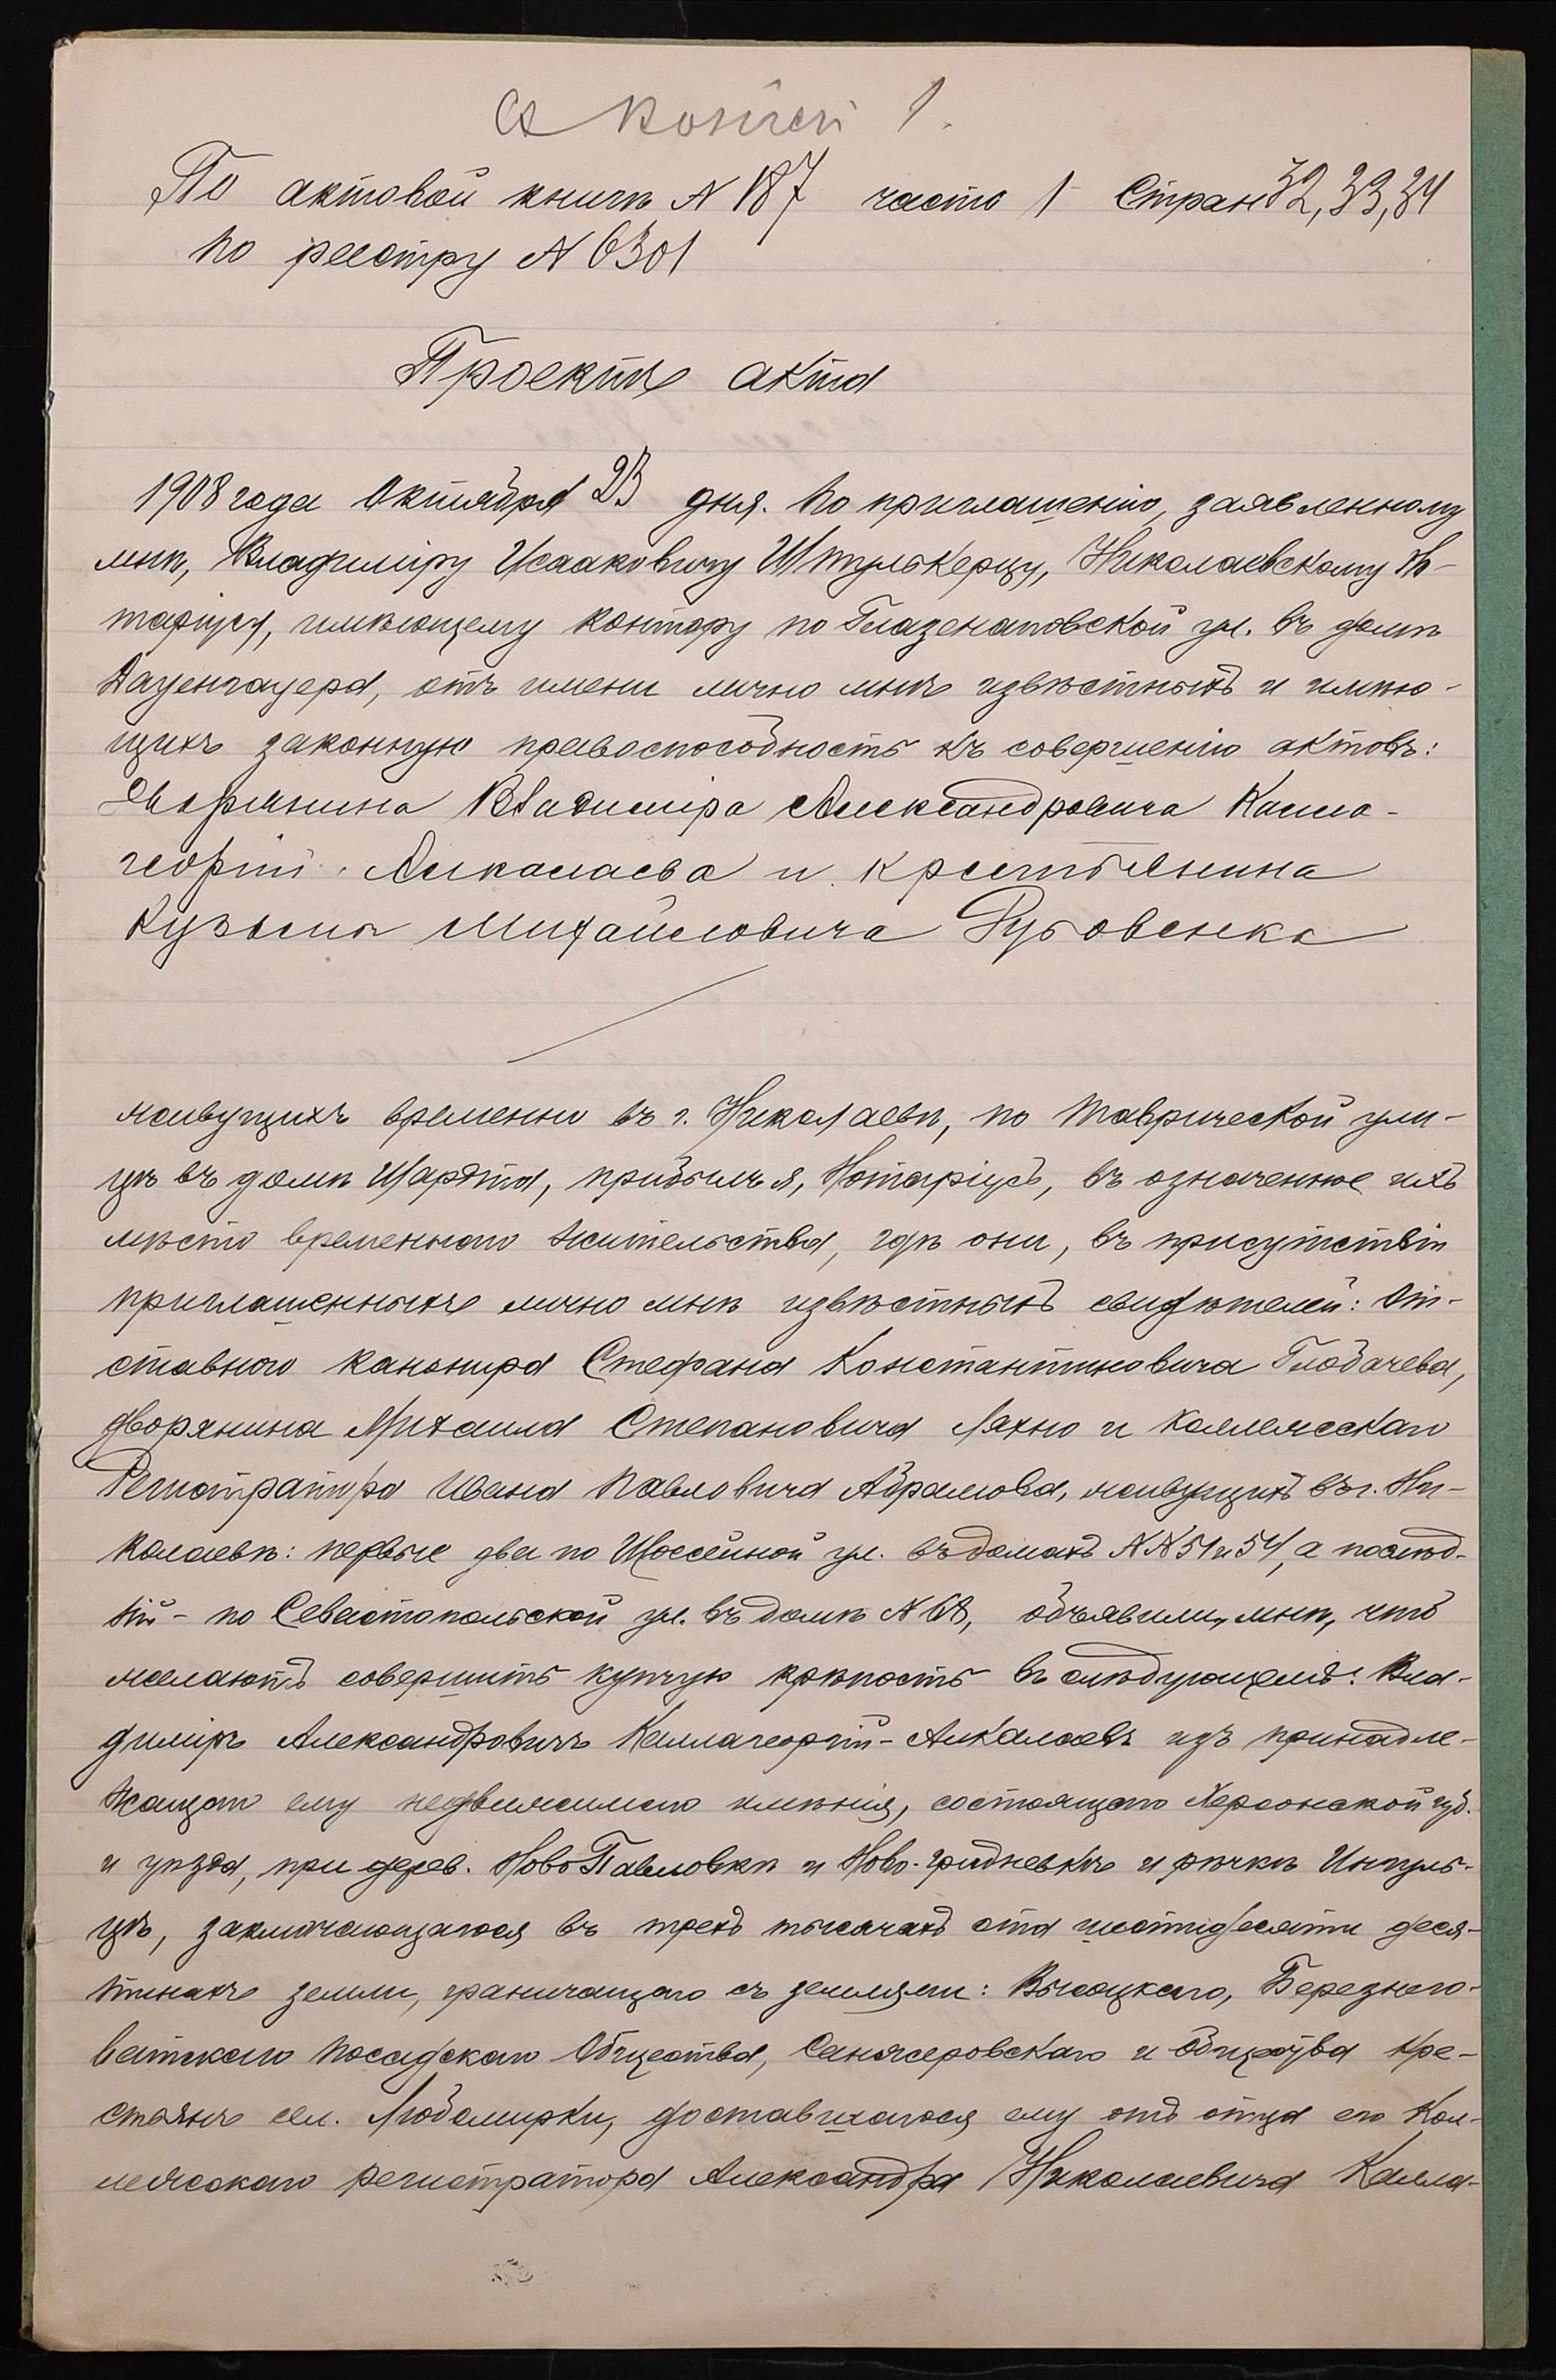 По актовой книгѣ N 187 часть 1 Стран 32, 33, 34
по реестру N 6301
Проектъ акта
1908 года Октября 23 дня. По приглашенію, заявленному
мнѣ, Владиміру Исааковичу Штулькерцу, Николаевскому Но-
таріусу, имѣющему контору по Глазенаповской ул. въ домѣ
Даценгауера, отъ имени лично мнѣ извѣстныхъ и имѣю-
щихъ законную правоспособность къ совершенію актовъ:
Дворянина Владиміра Александровича Калла-
георгій-Алкалаева и крестьянина
Кузьмы Михайловича Рубовенка
живущихъ временно въ г. Николаевѣ, по Таврической ули-
цѣ въ домѣ Шардта, прибылъ я, Нотаріусъ, въ означенное ихъ
мѣсто временного жительства, гдѣ они, въ присутствіи
приглашенныхъ лично мнѣ извѣстныхъ свидѣтелей: От-
ставного канонира Стефана Константиновича Глобачева,
дворянина Михаила Степановича Лахно и Коллежскаго
Регистратора Ивана Павловича Абрамова, живущихъ въ г. Ни-
колаевѣ: первые два по Шоссейной ул. въ домахъ NN 51 и 54, а послѣд-
ній - по Севастопольской ул. въ домѣ N 68, объявили мнѣ, что
желаютъ совершить купчую крѣпость въ слѣдующемъ: Вла-
диміръ Александровичъ Каллагеоргій-Алкалаевъ изъ принадле-
жащаго ему недвижимаго имѣнія, состоящаго Херсонской губ.
и уѣзда, при дерев. Ново Павловкѣ и Ново-Гридневкѣ и рѣчкѣ Ингуль-
цѣ, заключающагося въ трехъ тысячахъ ста шестидесяти деся-
тинахъ земли, граничащаго съ землями: Высоцкаго, Березнего-
ватскаго Посадскаго Общества, Санжеровскаго и Общества Кре-
стьянъ сел. Любомирки, доставшагося ему отъ отца его Кол-
лежскаго регистратора Александра Николаевича Калла-